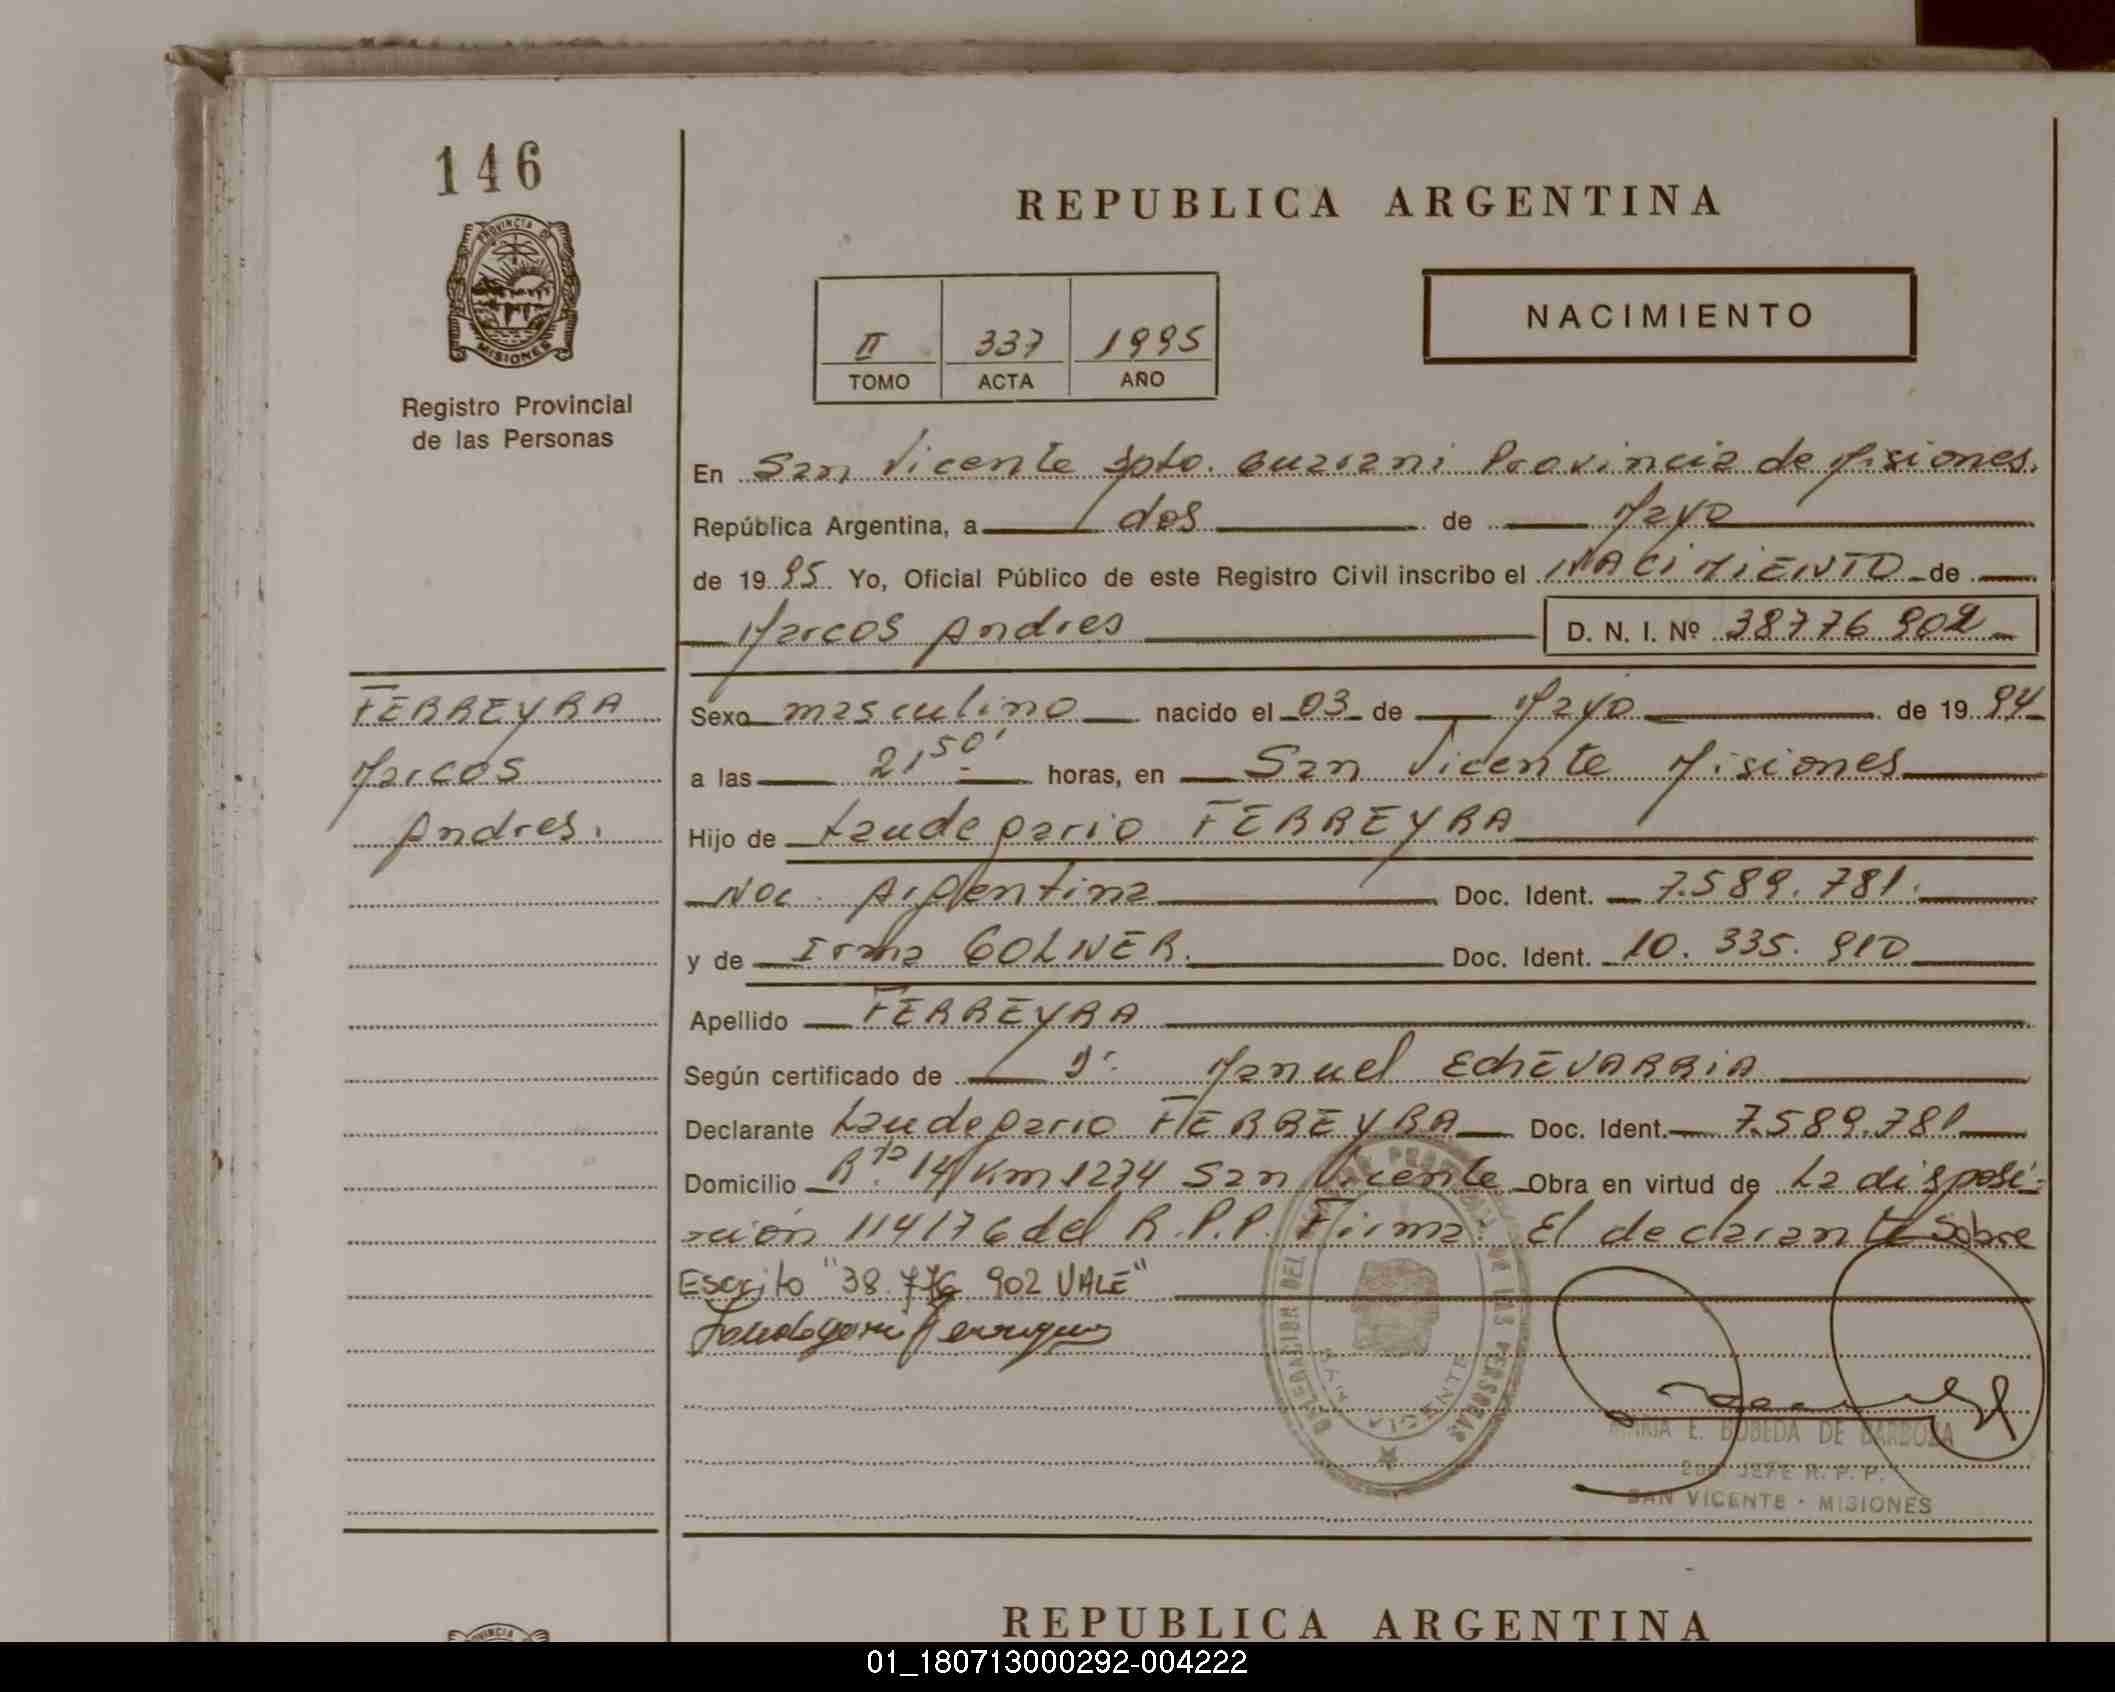 146
PROVINCIA DE
MISIONES
Registro Provincial
de las Personas
REPUBLICA ARGENTINA
NACIMIENTO
II 337 1995
TOMO ACTA AÑO
En San Vicente Dpto. Guarani Provincia de Misiones.
República Argentina, a dos de Mayo
de 1995 Yo, Oficial Público de este Registro Civil inscribo el NACIMIENTO de
Marcos Andres D. N. I. Nº 38776902
FERREYRA
Marcos
Andres.
Sexo masculino nacido el 03 de Mayo de 1994
a las 21 50' horas, en San Vicente Misiones
Hijo de Laudegario FERREYRA
Nac. Argentina Doc. Ident. 7.589.781.
y de Irma GOLNER. Doc. Ident. 10.335.910
Apellido FERREYRA
Según certificado de Dr. Manuel EchEVARRIA
Declarante Laudegario FERREYRA Doc. Ident. 7.589.781
Domicilio Rta. 14 Km 1274 San Vicente Obra en virtud de La disposi-
ción 114176 del R.P.P. Firma: El declarante Sobre
Escrito "38.776 902 VALE"
DE LAS PERSONAS
MARIA E. BOBEDA DE BARBOZA
2do. JEFE R. P. P.
SAN VICENTE - MISIONES
REPUBLICA ARGENTINA
01_180713000292-004222